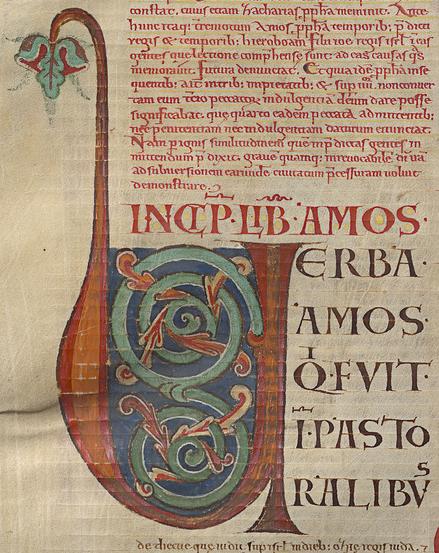 constat, cuius etiam zacharias ppha meminit. Ante
hunc itaq; terremotum Amos ppha temporib; p dicti
regis & temporib; hieroboam filii ioe regis isrl
gentes que lectione comphense sunt: ad eas causas qs
memorauit. futura denuntiat. Et quia idē ppha in se
quentib; ait: in trib; impietatib; & sup iiii. non conuer
tam eum. peccatori indulgentiā dare posse
significabat. que quarto eadem peccata admittentib;
nec penitentiam nec indulgentiam daturum enuntiat.
Nam similitudinem que dictas gentes in
mittendum p dixit. graue quamq; inreuocabile
ad subuersionem earunde ciuitatum p cessuram uoluit
demonstrare.
INCIP·LIB·AMOS·
VERBA·
AMOS·
Q·FVIT·
I·PASTO
RALIBVS
de thecue. que uidit sup isrl in dieb; ozie regis iuda. 7